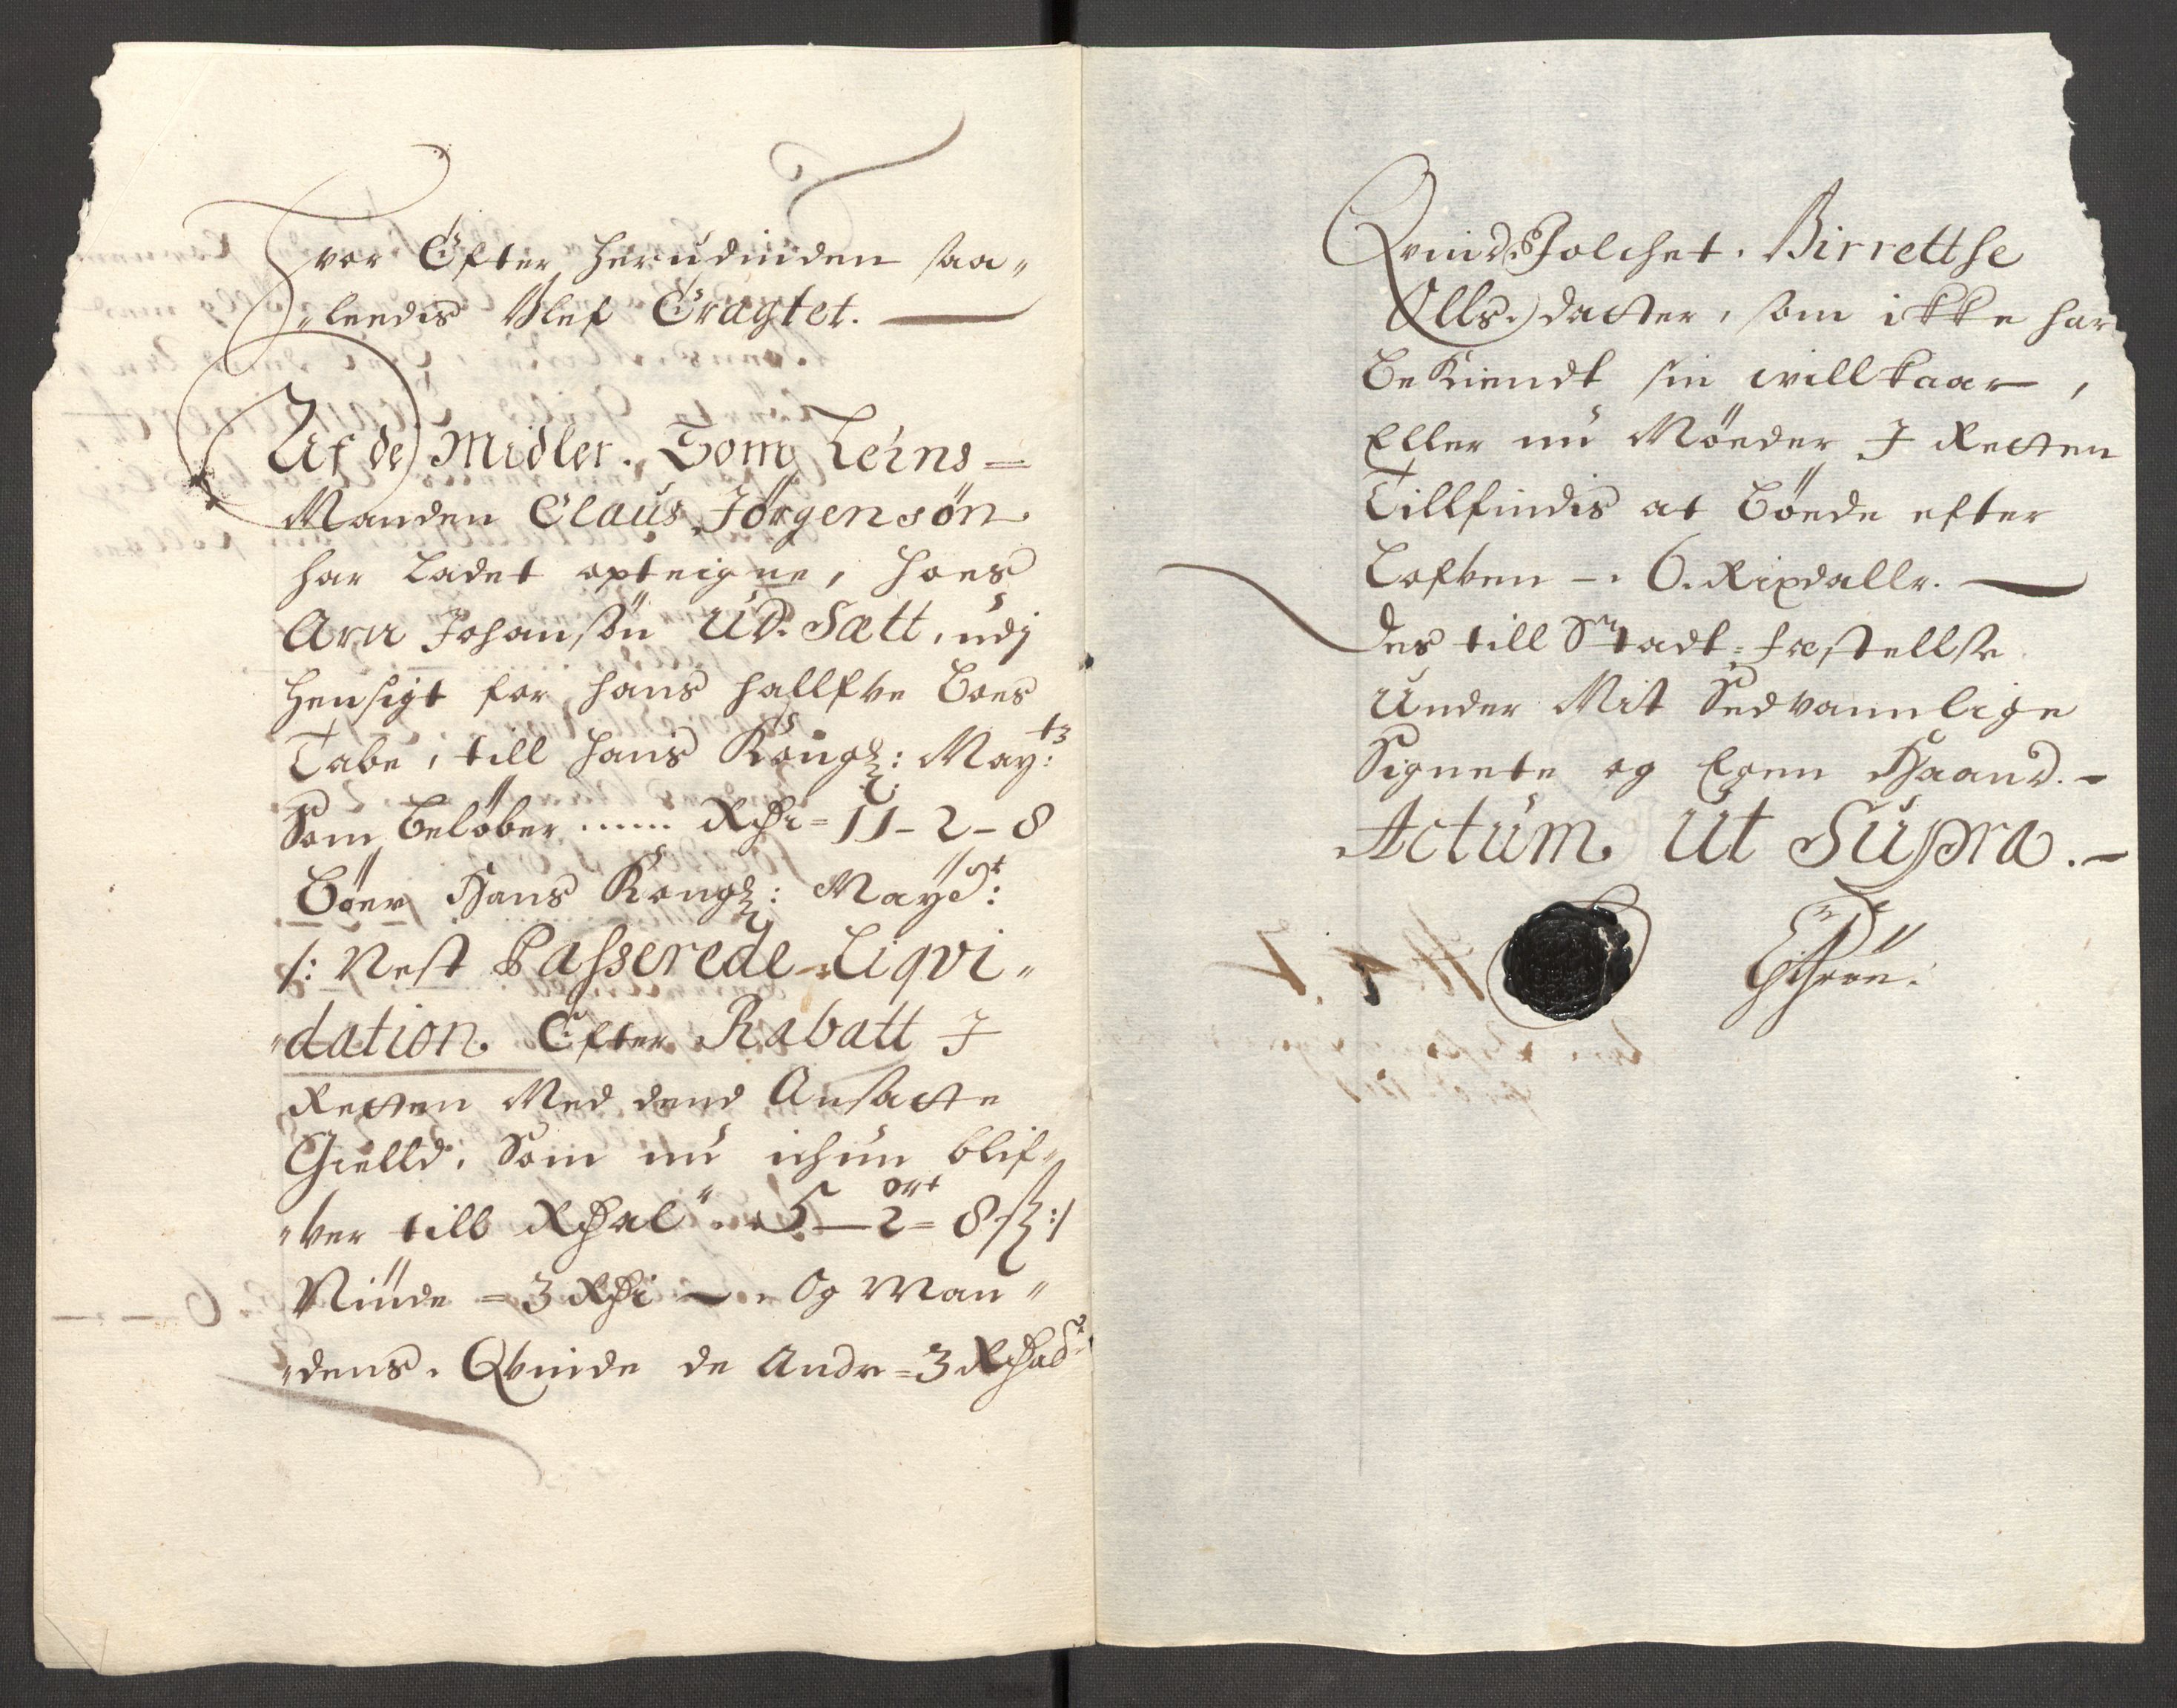 Hvor Efter herudinden saa„
„leedis blef Eragtet.
Af de Midler. Som Leins=
Manden Claus Jörgensön
har Ladet opteigne, hoes
Arn Johansön Ud. Sætt, udj
hensigt for hans hallfve boes
Tabe, till hans Kongl: Mayts:
Som belöber ...... Rdr = 11 - 2 - 8
böer Hans Kongl: Mayst:
/: Nest Passerede Liqvi„
„dation Efter Rabatt J
Retten Med dend Ansatte
Gielld, Som nu ichun blif„
„ver till Rdal 5 — 2 ort = 8 s :/
Niude = 3 Rdr — Og Man„
„dens Qvinde de Andr = 3 Rdal
Qvindfolchet. Birretthe
Olls. datter, som ikke har
bekiendt sin willkaar,
Eller nu Möeder J Retten
Tillfindis at böede efter
Lofven — 6. Rixdallr.
Des till Stadfæstellse
Under Mit Sedvannlige
Signete og Egen Haand. —
Actum Ut Supra. —